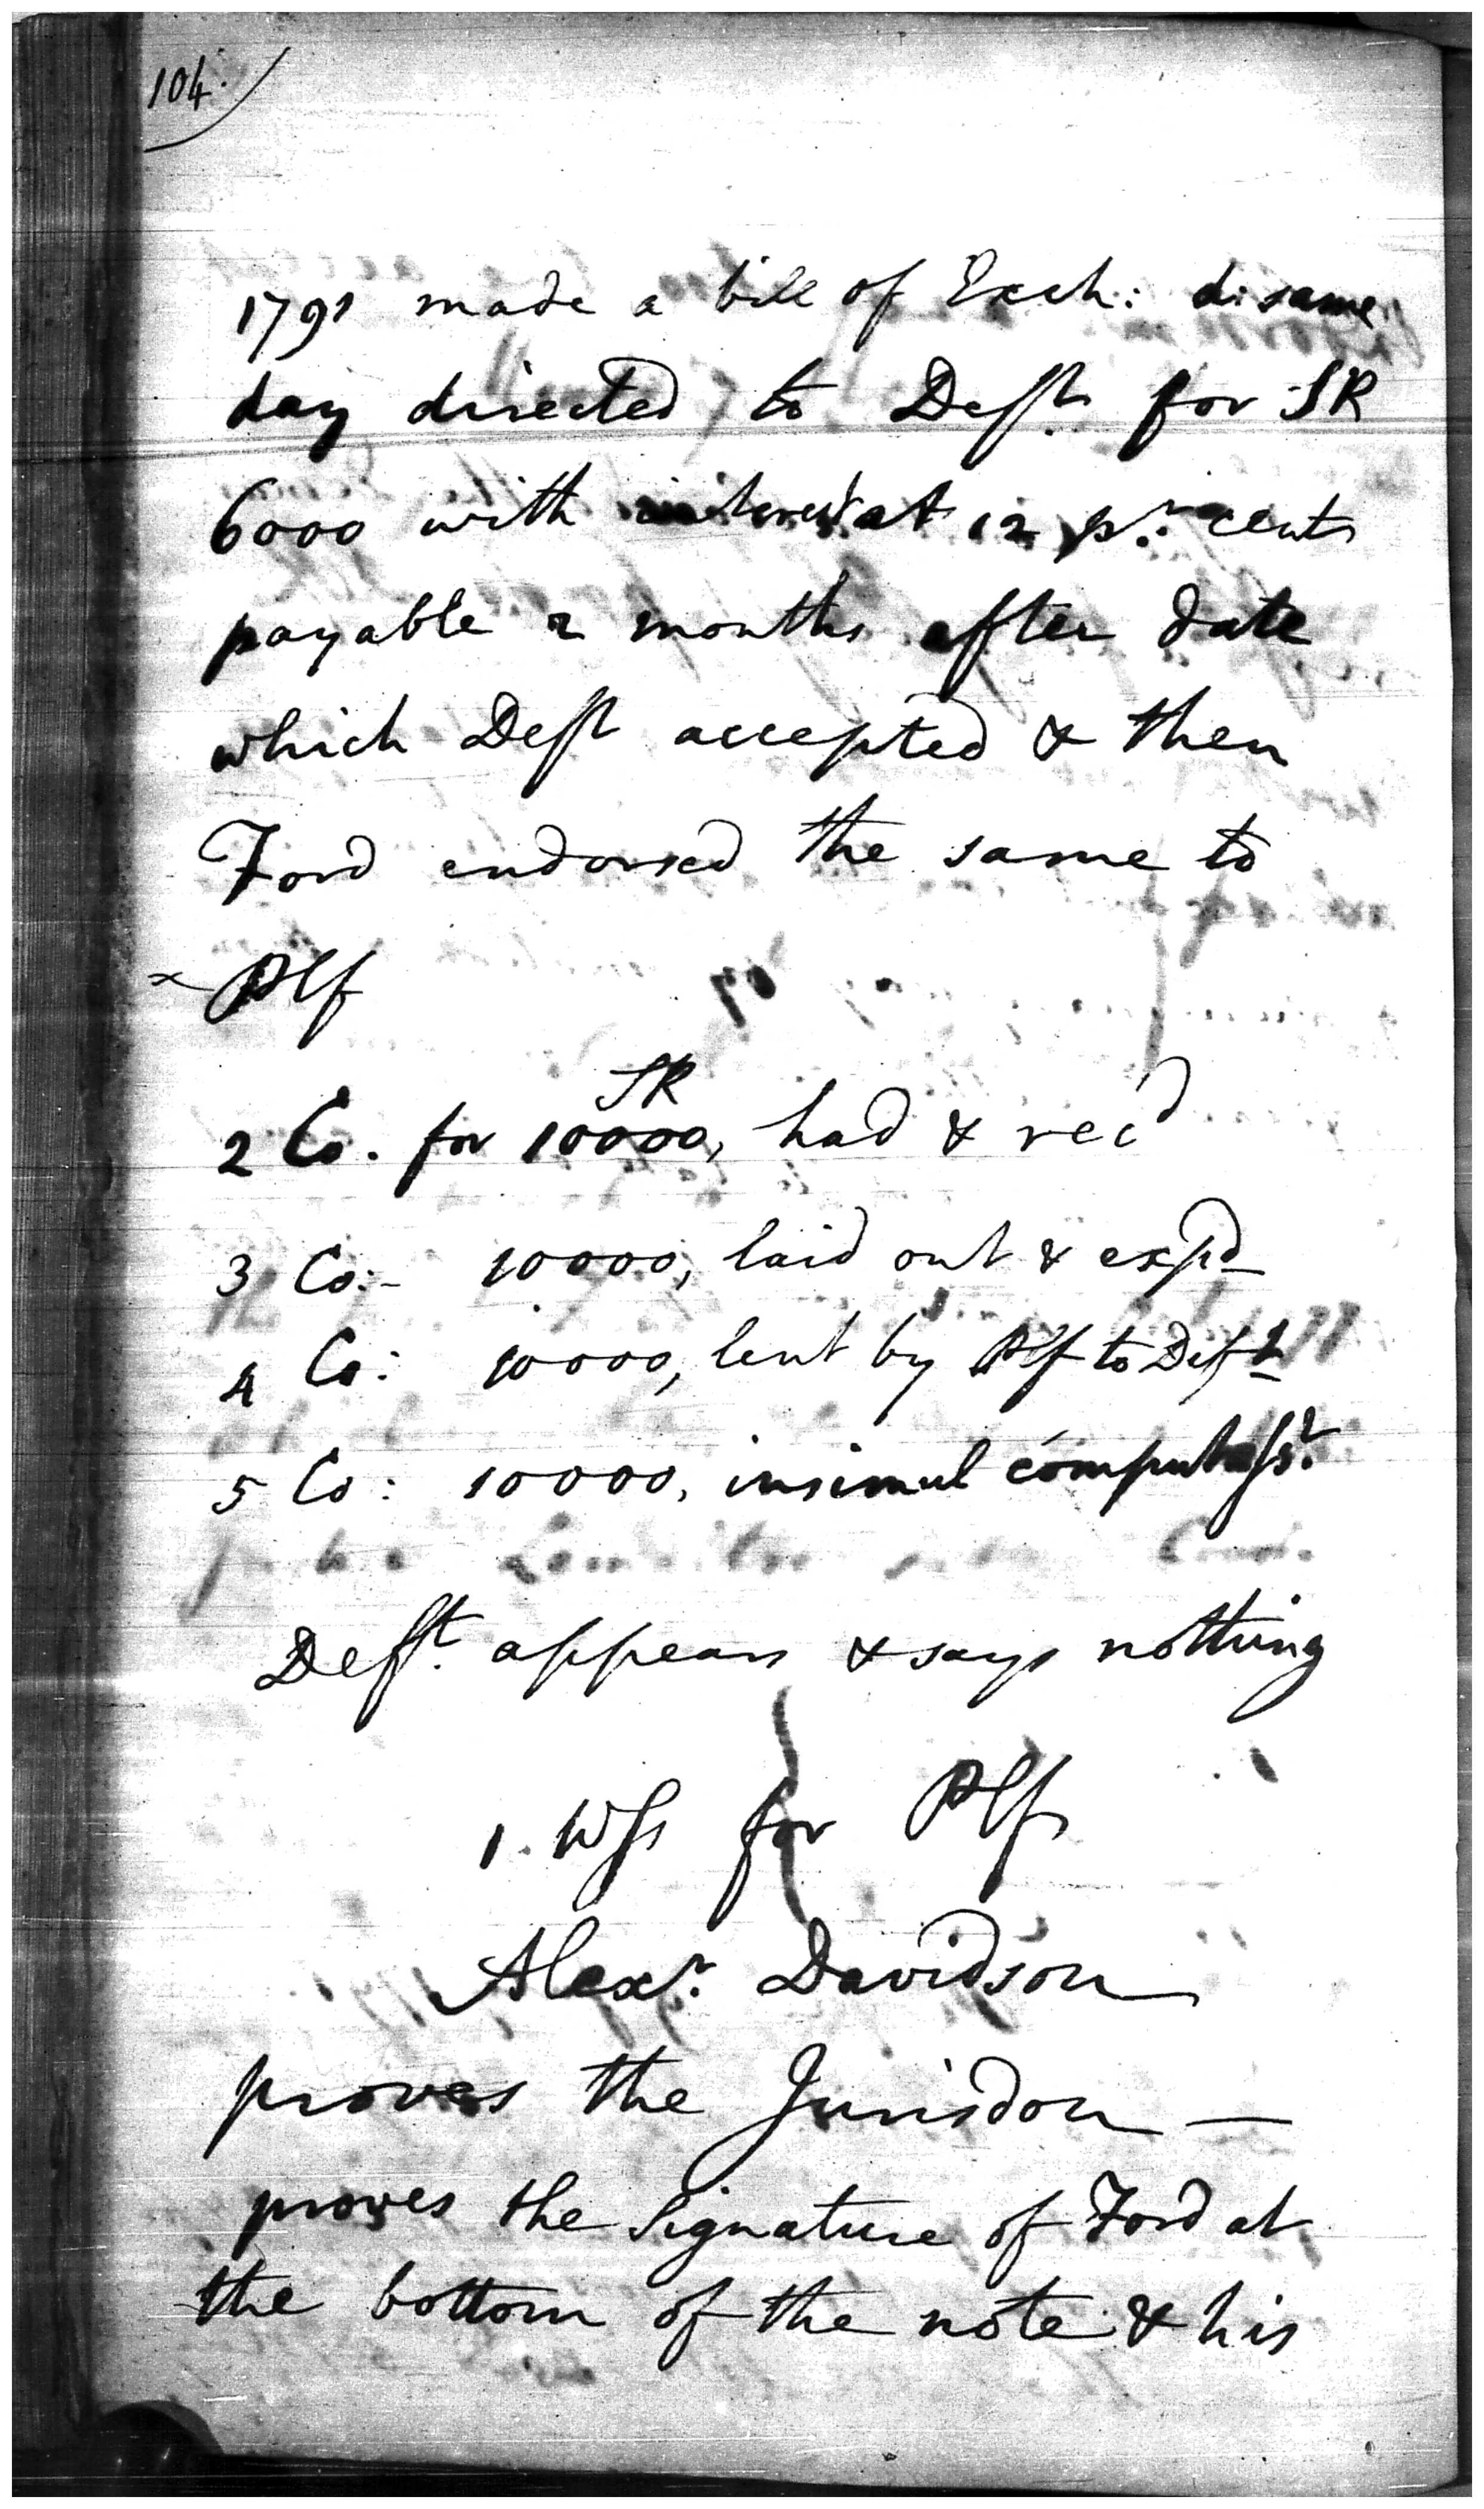 104.
1791 made a bill of Exch: d: same
day directed to Deft. for SR
6000 with interest at 12 pr. cent
payable 2 months after date
which Deft accepted & then
Ford endorsed the same to
x Plf
SR
2 Co. for 10000, had & rec'd
3 Co:- 10000, laid out & expd
4 Co: 10000, lent by Plf to Deft
5 Co: 10000, insimul computasst.
Deft. appears & says nothing
1. Wss for Plf
Alexr. Davidson
proves the Jurisdon —
proves the Signature of Ford at
the bottom of the note & his